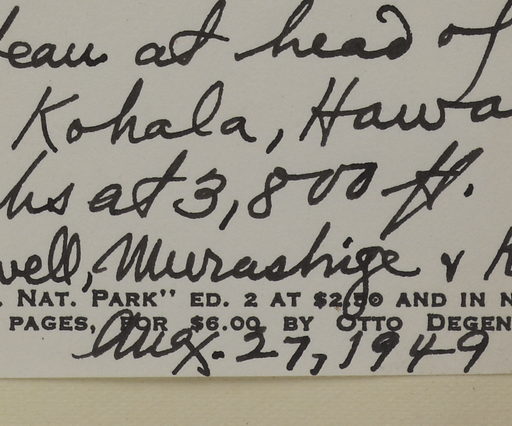 eau at head of
Kohala, Hawa
hs at 3,800 ft.
well, Murashige & K
. NAT. PARK" ED. 2 AT $2.50 AND IN N
PAGES, FOR $6.00 BY OTTO DEGEN
Aug. 27, 1949